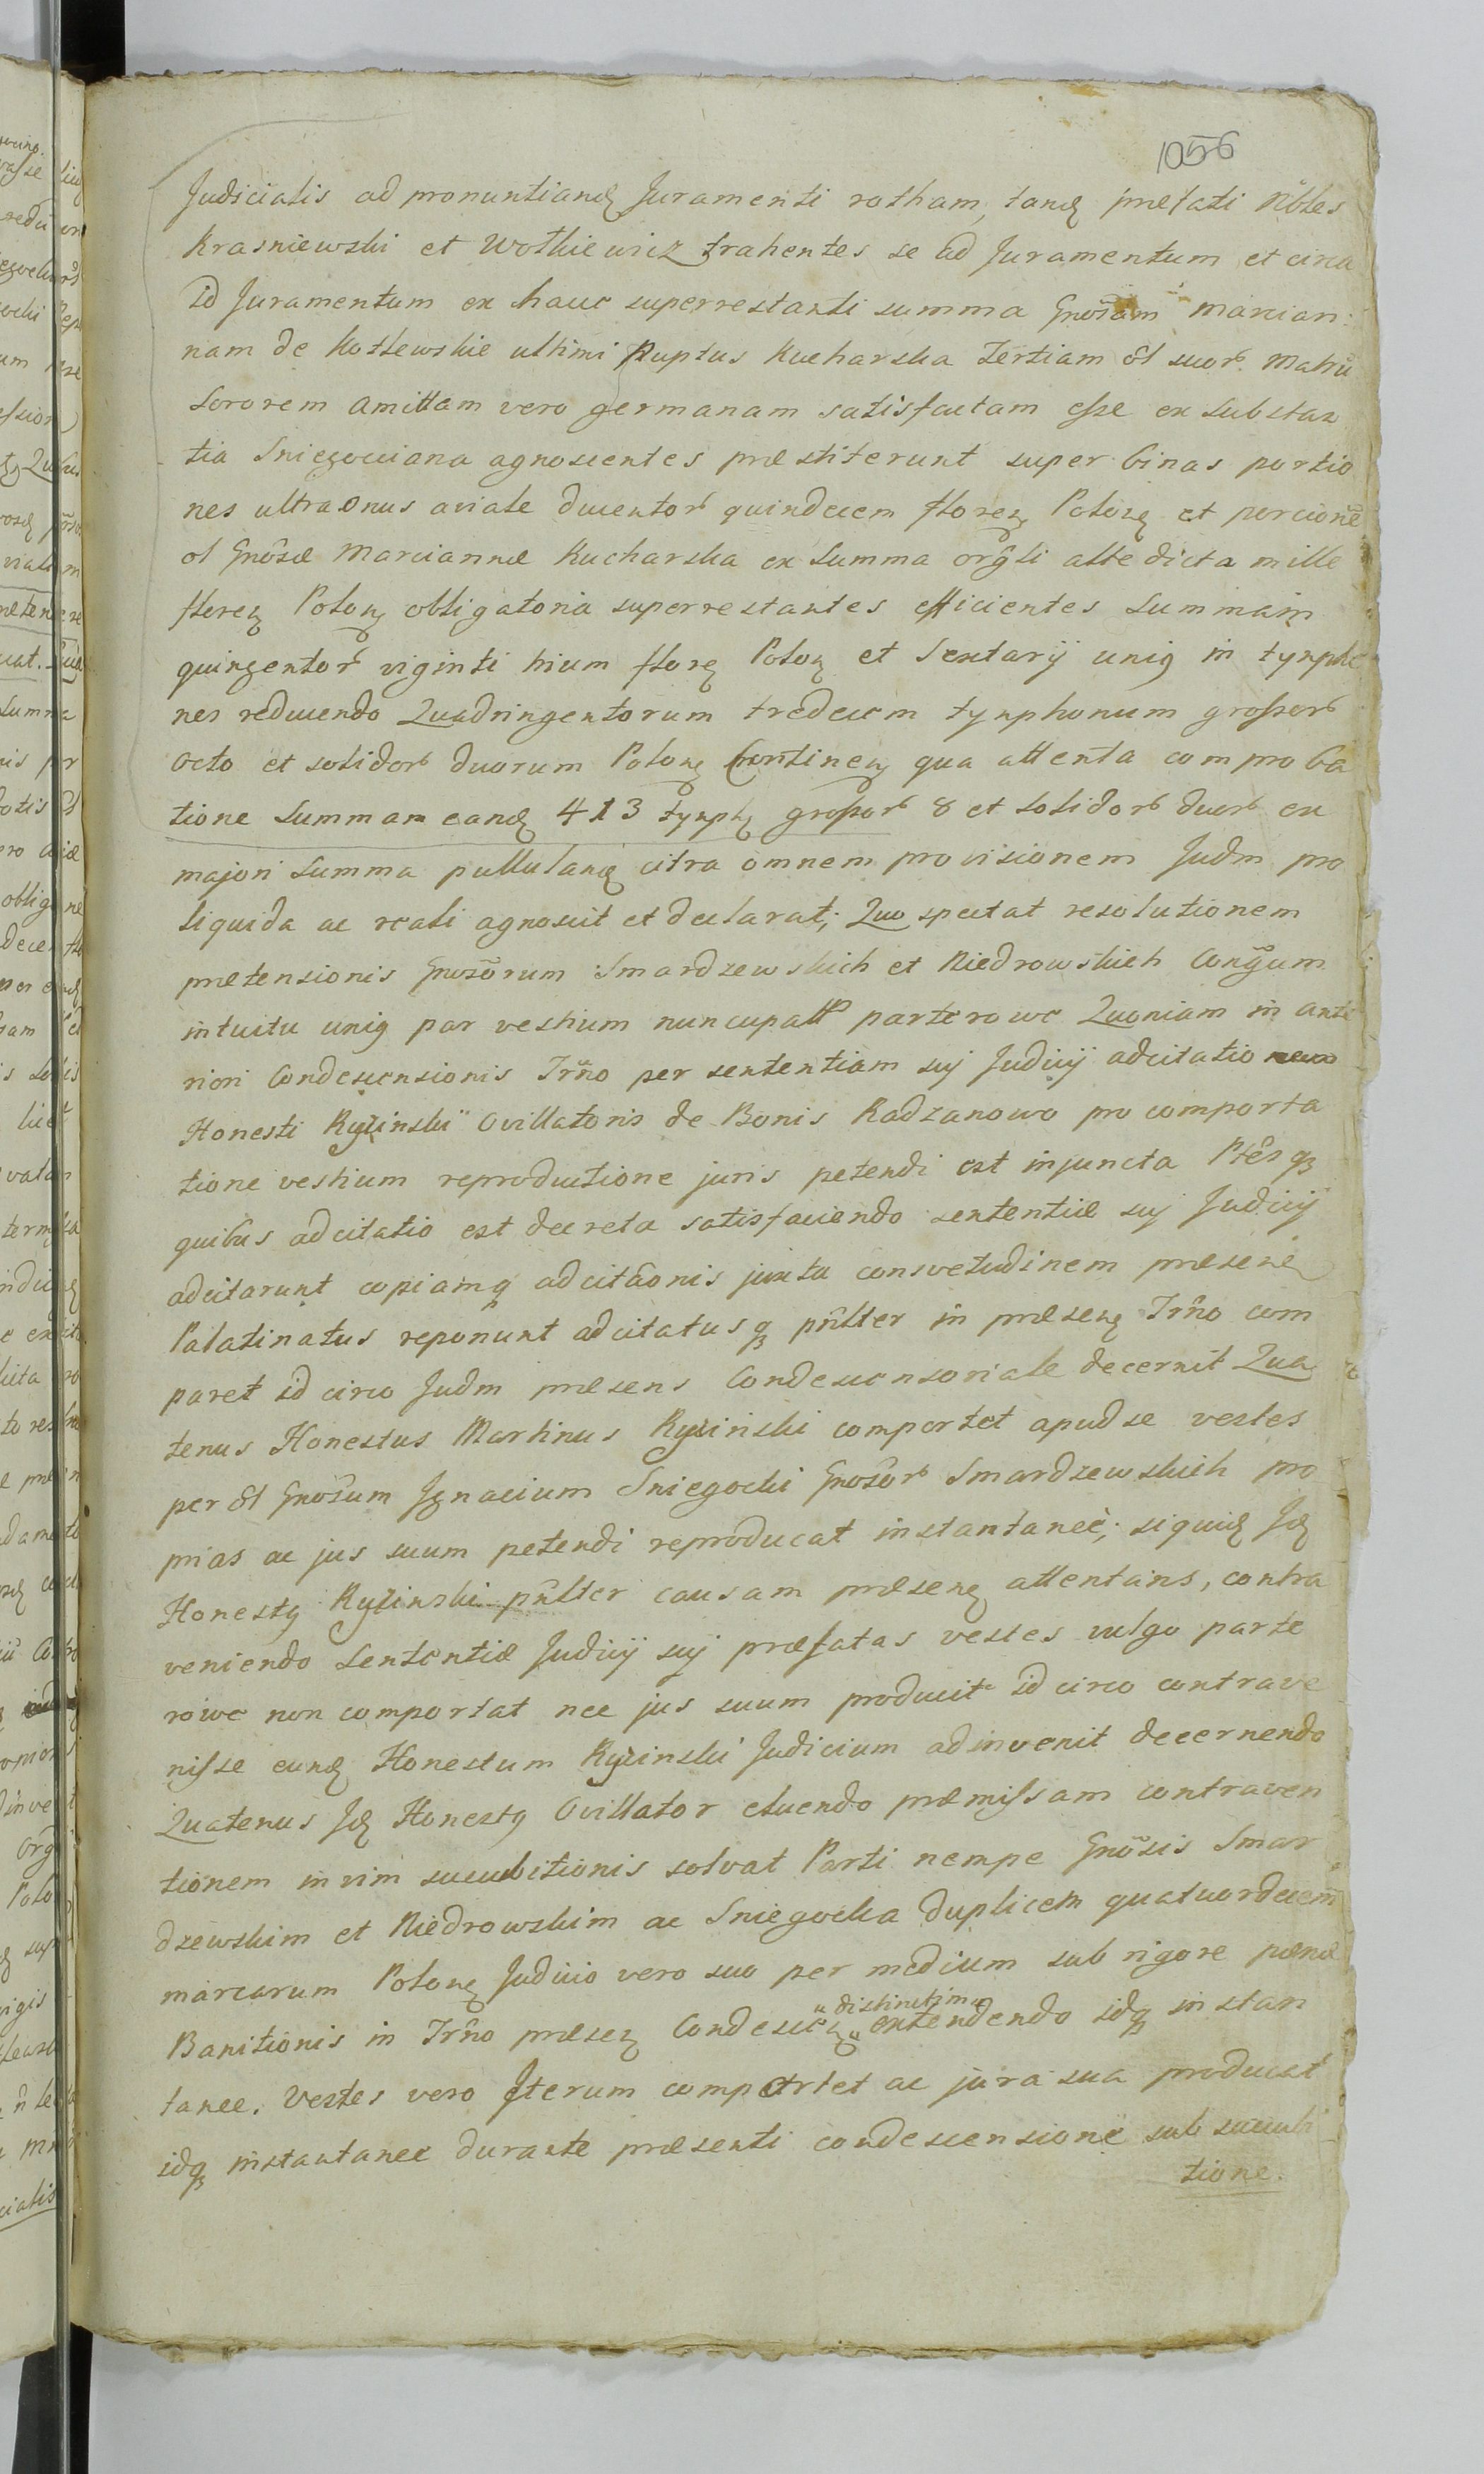 1056
Judicialis ad pronuntiandę Juramenti rotham, tandę præfati Nbles
Krasniewski et Wotkiewicz trahentes se ad Juramentum et circa
id Juramentum ex hauc superrestanti summa Gnosam Marcian:
nam de Kotlewskie ultimi Ruptus Kucharska tertiam ol suor. Matrū
Sororem Amittam vero germanam satisfactam esse ex Substan
tia Sniegocciana agnoscentes præstiterunt super binas portio
nes ultra onus aviale ducentor quindecem floreṇ Poloṇ et porcionē
ol Gnosæ Mariannæ Kucharska ex Summa orgli alte dicta mille
floreṇ Poloṇ obligatoria superrestantes efficientes Summam
quingentor viginti trium floreṇ Poloṇ et Sextarij uniq in tympho
nes reducendo Quadringentorum tredecem tynphonum grossor
octo et solidor duorum Poloṇ Contineṇ qua attenta comproba
tione Summam eandę 413 tynpħ grossor 8 et Solidor duor ex
majori Summa pullulanę citra omnem provisionem Judm pro
liquida ac reali agnoscit et declarat; Quo spectat resolutionem
prætensionis Gnosorum Smardzewskich et Niedrowskich Congum
intuitu uniq par vestium nuncupatt parterowe Quoniam in ante
riori Condescensionis Trno per sententiam suj Judicij adcitatio
Honesti Ryzinski Ovillatoris de Bonis Radzanowo pro comporta
tione vestium reproductione juris petendi est injuncta Ptesq
quibus adcitatio est decreta satisfaciendo sententiæ suj Judicij
adcitarunt copiamq adcitaonis juxta consvetudinem præsenę
Palatinatus reponunt adcitatusq pnlter in præsenę Trno com
paret id circo Judm præsens Condescensoriale decernit Qua
tenus Honestus Martinus Ryzinski comportet apud se vestes
per ol Gnosum Ignacium Sniegocki Gnosor Smardzewskich pro
prias ac jus suum petendi reproducat instantaneè; siquidę Idę
Honestq Ryzinski pnlter causam præsenę attentans, contra
veniendo Sententiæ Judicij suj præfatas vestes vulgo parte
rowe non comportat nec jus suum producit id circo contrave
nisse eundę Honestum Ryzinski Judicium adinvenit decernendo
Quatenus Idę Honestq Ovillator eluendo præmissam contraven
tionem in vim succubitionis solvat Parti nempe Gnosis Smar
dzewskim et Niedrowskim ac Sniegocka duplicem quatuordecem
marcarum Poloṇ Judicio vero suo per medium sub rigore pœnæ
Banitionis in Trno præseṇ Condesceṇ „distinctim„ extendendo idq instan
tanee. Vestes vero Iterum comportet ac jura sua producat
idq instantanee durante præsenti condescensione sub succubi
tione.